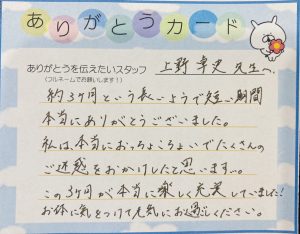 ありがとうカード
ありがとうを伝えたいスタッフ
(フルネームでお願いします!)
上野 幸史 先生へ
約3ケ月という長いようで短い期間
本当にありがとうございました。
私は、本当におっちょこちょいでたくさんの
ご迷惑をおかけしたと思います…。
この3ケ月が本当に楽しく充実していました!
お体に気をつけて元気にお過ごしください。